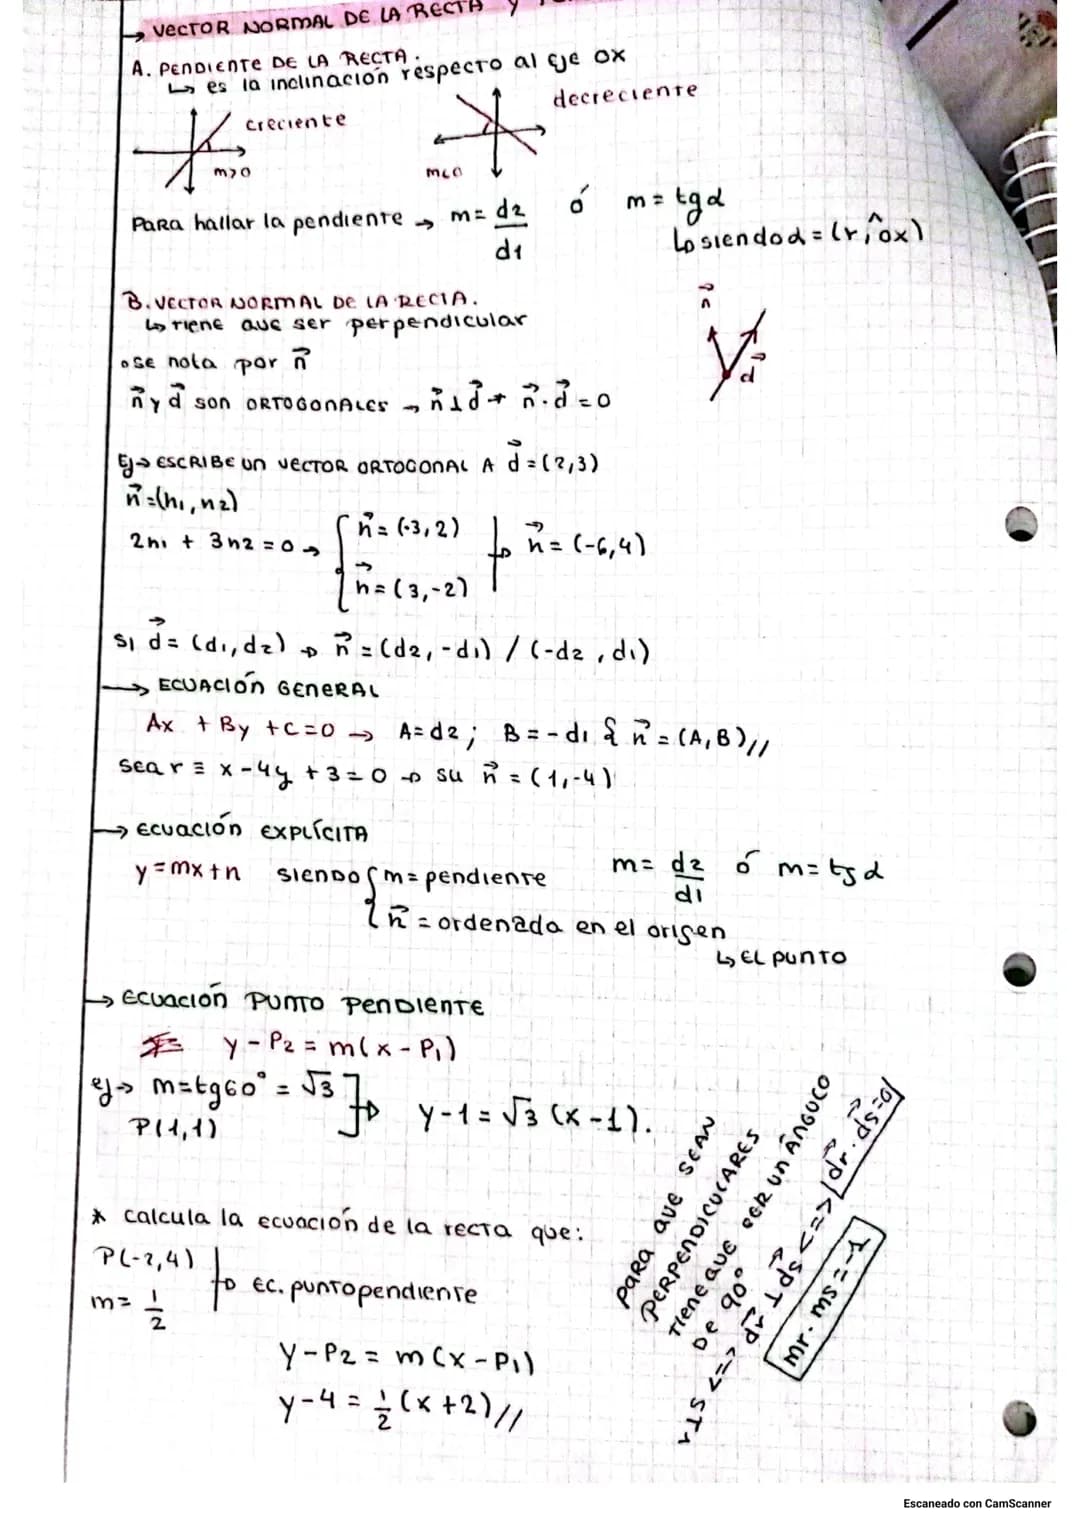 → VECTOR NORMAL DE LA RECTA Y
A. PENDIENTE DE LA RECTA.
↳ es la inclinación respecto al eje ox
creciente
decreciente
m>0
m<0
Para hallar la pendiente → m = d2/d1 ó m = tg α
↳ siendo α = (r, ôx)
B. VECTOR NORMAL DE LA RECTA.
↳ tiene que ser perpendicular
• se nota por n⃗
n⃗
d⃗
n⃗ y d⃗ son ORTOGONALES → n⃗ ⊥ d⃗ → n⃗ · d⃗ = 0
Ej → ESCRIBE UN VECTOR ORTOGONAL A d⃗ = (2,3)
n⃗ = (n1, n2)
2n1 + 3n2 = 0 → { n⃗ = (-3, 2)
n⃗ = (3, -2)
→ n⃗ = (-6, 4)
Si d⃗ = (d1, d2) → n⃗ = (d2, -d1) / (-d2, d1)
→ ECUACIÓN GENERAL
Ax + By + C = 0 → A = d2; B = -d1 { n⃗ = (A, B)//
sea r ≡ x - 4y + 3 = 0 → su n⃗ = (1, -4)
→ ECUACIÓN EXPLÍCITA
y = mx + n siendo { m = pendiente
m = d2/d1 ó m = tg α
n⃗ = ordenada en el origen
↳ EL PUNTO
→ ECUACIÓN PUNTO PENDIENTE
y - P2 = m(x - P1)
ej → m = tg 60° = √3
P(1,1)
→ y - 1 = √3 (x - 1).
* calcula la ecuación de la recta que:
P(-2,4)
m = 1/2
→ EC. puntopendiente
y - P2 = m(x - P1)
y - 4 = 1/2 (x + 2)//
PARA QUE SEAN
PERPENDICULARES
TIENE QUE SER UN ÁNGULO
DE 90°
r ⊥ s <=> dr⃗ ⊥ ds⃗ <=> dr⃗ · ds⃗ = 0
mr · ms = -1
Escaneado con CamScanner